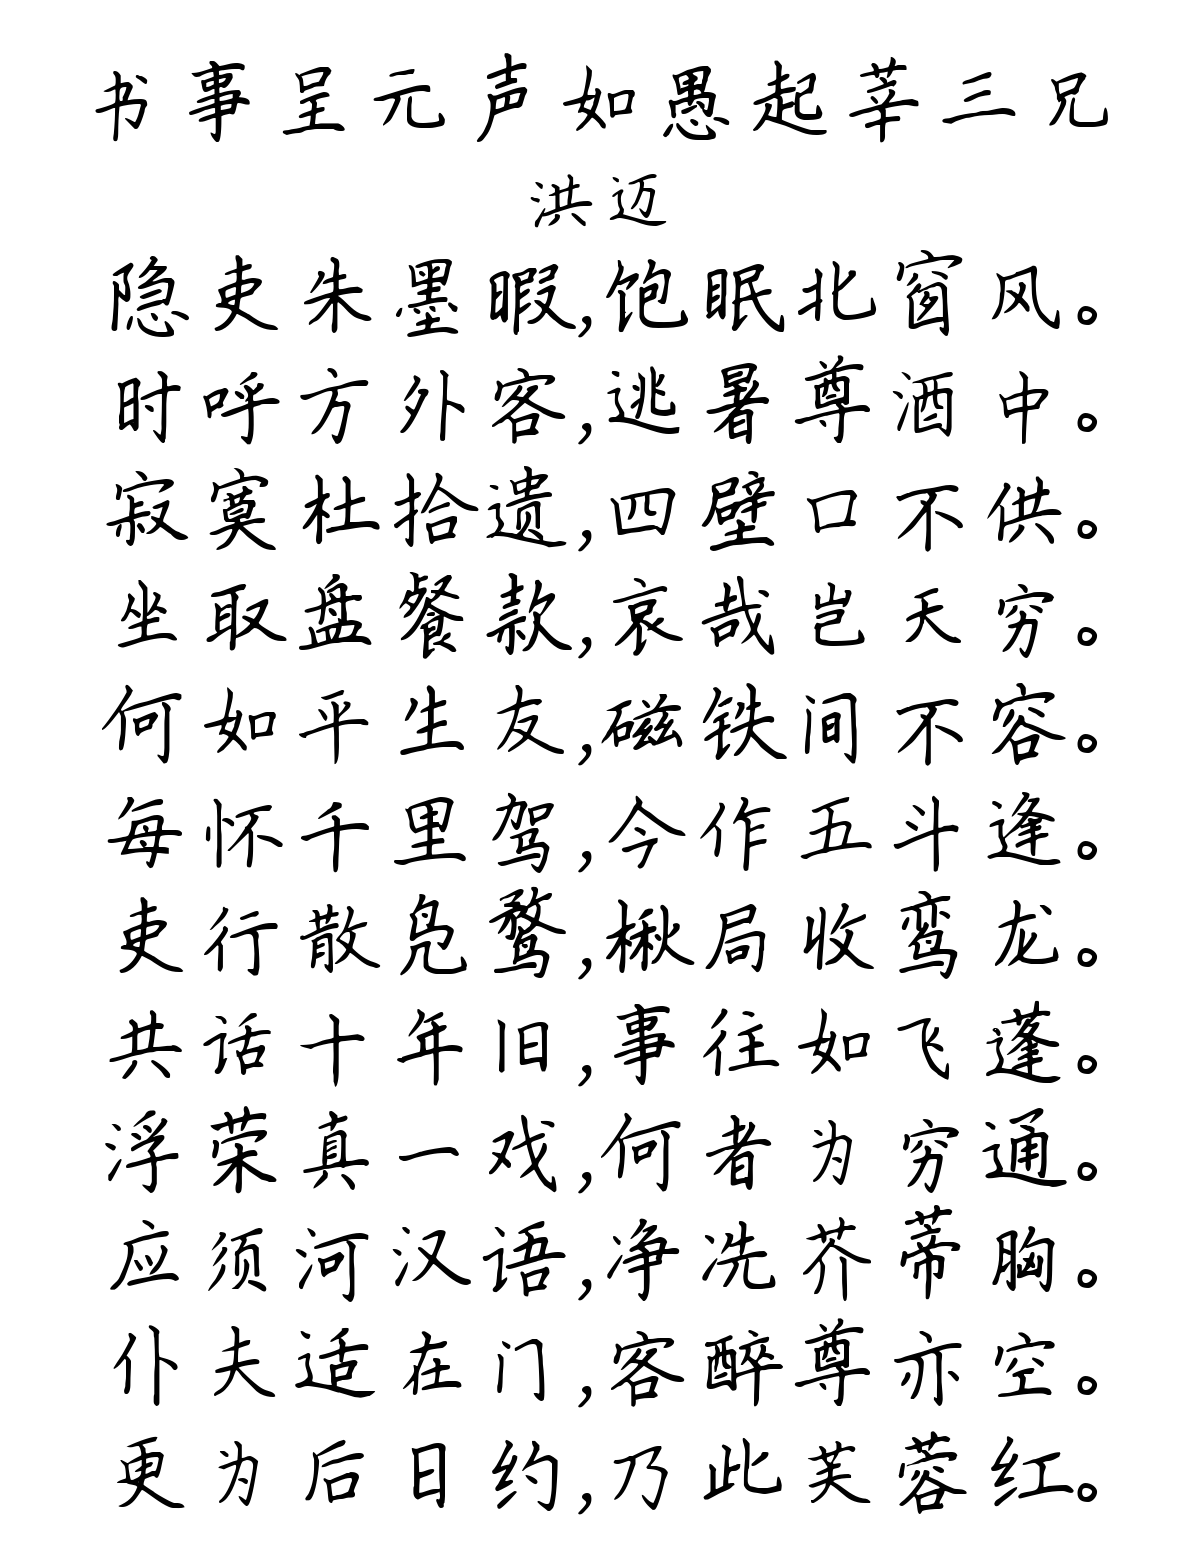 书事呈元声如愚起莘三兄
洪迈
隐吏朱墨暇,饱眠北窗风。
时呼方外客,逃暑尊酒中。
寂寞杜拾遗,四壁口不供。
坐取盘餐款,哀哉岂天穷。
何如平生友,磁铁间不容。
每怀千里驾,今作五斗逢。
吏行散凫鹜,楸局收鸾龙。
共话十年旧,事往如飞蓬。
浮荣真一戏,何者为穷通。
应须河汉语,净冼芥蒂胸。
仆夫适在门,客醉尊亦空。
更为后日约,乃此芙蓉红。